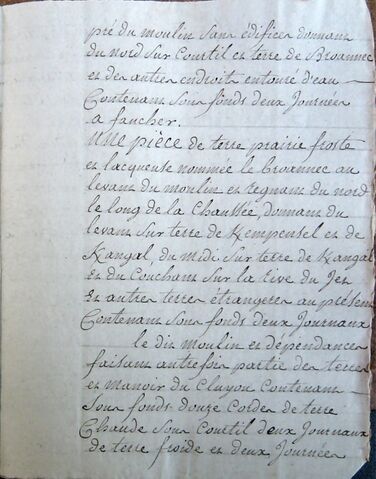 pré du moulin sans édifices donnant
du nord sur Courtil et terre de Broannec
et des autres endroits entouré d'eau
Contenant sous fonds deux Journées
a faucher.
une pièce de terre prairie froste
et lacqueuse nommée le broannec au
levant du moulin et regnant du nord
le long de la Chaussée, donnant du
levant sur terre de Kempensel et de
Kangal, du midi sur terre de Kangal
et du Couchant sur la rive du Jet
et autres terres étrangeres au présent
Contenant sous fonds deux Journaux
le dit moulin et dépendances
faisant autrefois partie des terres
et manoir du Cluyou Contenant
sous fonds douze Cordes de terre
Chaude sous Courtil deux Journaux
de terre froide et deux Journées